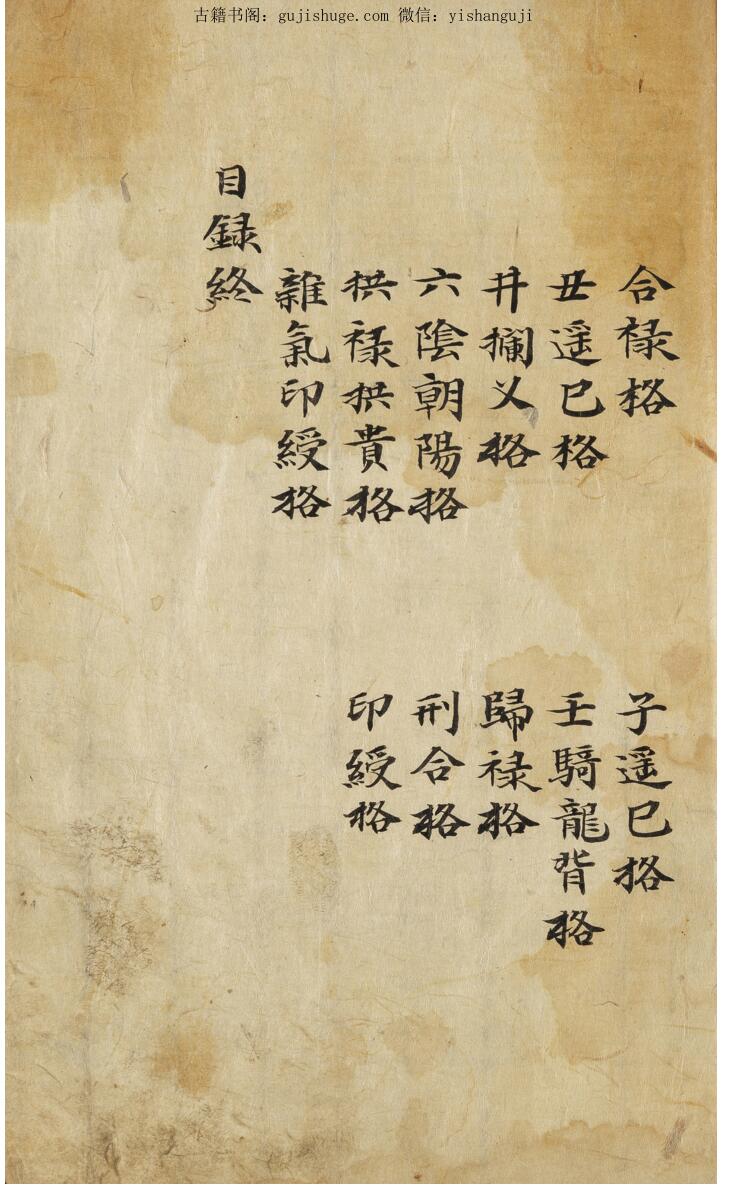 古籍书阁：gujishuge.com 微信：yishanguji
合禄格
子遥巳格
丑遥巳格
壬騎龍背格
井攔乂格
歸禄格
六陰朝陽格
刑合格
拱禄拱貴格
印綬格
雜氣印綬格
目録終